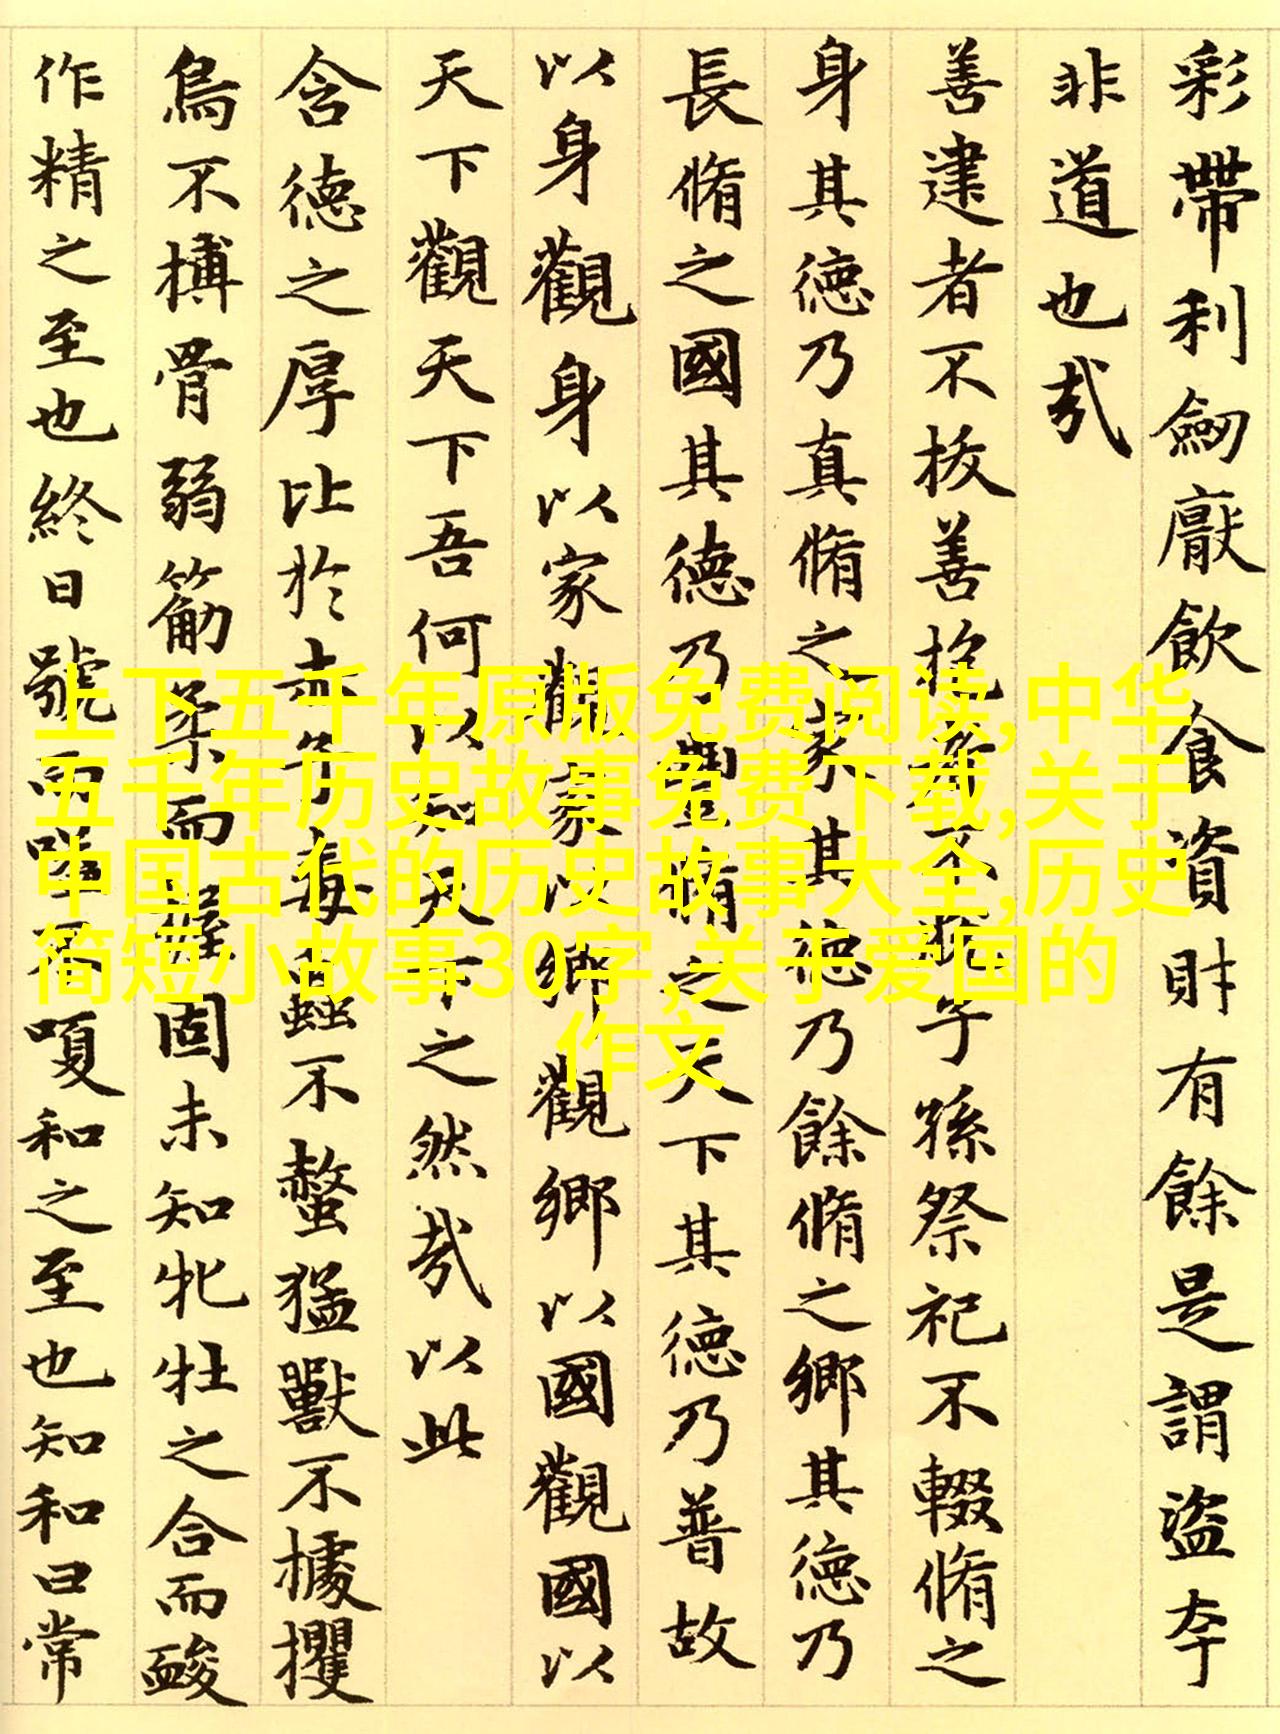 彩帶利劒厭飲食資財有餘是謂盜夸
非道也哉
善建者不拔善抱者不脫子孫祭祀不輟脩之
身其德乃真脩之家其德乃餘脩之鄉其德乃
長脩之國其德乃豐脩之天下其德乃普故
以身觀身以家觀家以鄉觀鄉以國觀國以
天下觀天下吾何以知天下之然哉以此
含德之厚比於赤子毒蟲不螫猛獸不據攫
鳥不搏骨弱筋柔而握固未知牝牡之合而䘒
作精之至也終日號而嗌不嗄和之至也知和曰常
上下五千年原版免费阅读,中华
五千年历史故事免费下载,关于
中国古代的历史故事大全,历史
简短小故事30字,关于爱国的
作文